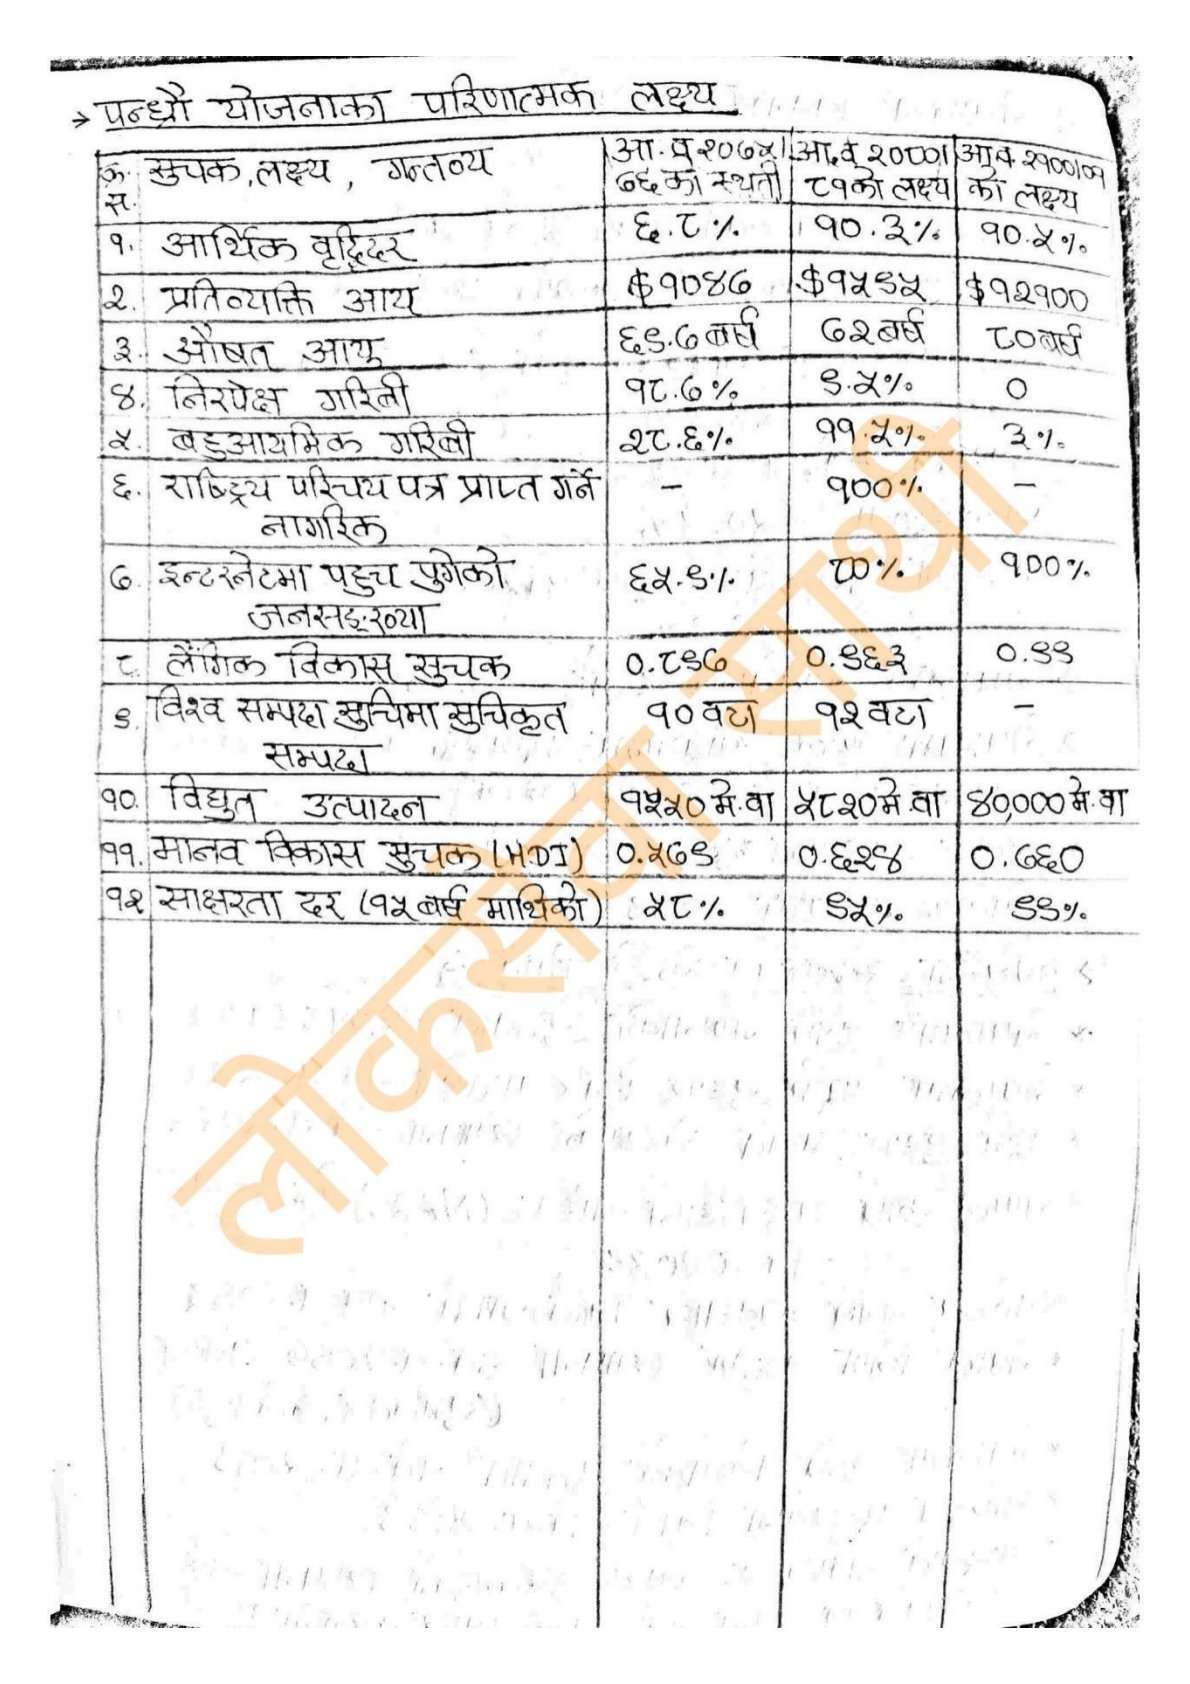 → पन्ध्रौ योजनाका परिणात्मक लक्ष्य
क्र. स. सुचक, लक्ष्य, गन्तव्य | आ.व २०७५।७६ का स्थती | आ.व २०८०।८१को लक्ष्य | आ.व २१००।०१ को लक्ष्य
१. आर्थिक वृद्दिदर | ६.८% | १०.३% | १०.५%
२. प्रतिव्यक्ति आय | $१०४७ | $१५९५ | $१२१००
३. औषत आयु | ६९.७ बर्ष | ७२ बर्ष | ८० बर्ष
४. निरपेक्ष गरिबी | १८.७% | ९.५% | ०
५. बहुआयमिक गरिबी | २८.६% | ११.५% | ३%
६. राष्ट्रिय परिचय पत्र प्राप्त गर्ने | – | १००% | –
नागरिक
७. इन्टरनेटमा पहुच पुगेको | ६५.९% | ८०% | १००%
जनसङ्ख्या
८. लैंगिक विकास सुचक | ०.८९७ | ०.९६३ | ०.९९
९. विश्व सम्पदा सुचिमा सुचिकृत | १० वटा | १२ वटा | –
सम्पदा
१०. विद्युत उत्पादन | १२५० मे.वा | ५८२० मे.वा | ४०,००० मे.वा
११. मानव विकास सुचक (HDI) | ०.५७९ | ०.६२४ | ०.७६०
१२ साक्षरता दर (१५ बर्ष माथिको) | ५८% | ९५% | ९९%
लोकसेवा साथी